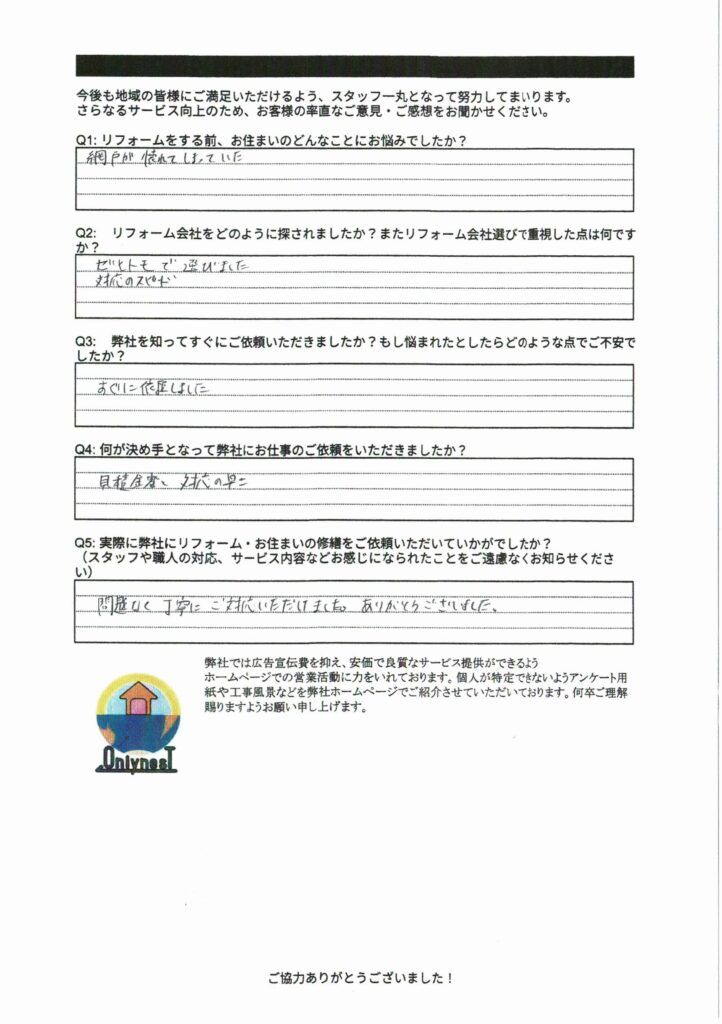 今後も地域の皆様にご満足いただけるよう、スタッフ一丸となって努力してまいります。
さらなるサービス向上のため、お客様の率直なご意見・ご感想をお聞かせください。
Q1: リフォームをする前、お住まいのどんなことにお悩みでしたか？
網戸が壊れてしまっていた
Q2:　リフォーム会社をどのように探されましたか？またリフォーム会社選びで重視した点は何です
か？
ゼヒトモで選びました
対応のスピード
Q3:　弊社を知ってすぐにご依頼いただきましたか？もし悩まれたとしたらどのような点でご不安で
したか？
すぐに依頼しました
Q4: 何が決め手となって弊社にお仕事のご依頼をいただきましたか？
見積金額、対応の早さ
Q5: 実際に弊社にリフォーム・お住まいの修繕をご依頼いただいていかがでしたか？
（スタッフや職人の対応、サービス内容などお感じになられたことをご遠慮なくお知らせくださ
い）
問題なく丁寧にご対応いただけました。ありがとうございました。
弊社では広告宣伝費を抑え、安価で良質なサービス提供ができるよう
ホームページでの営業活動に力をいれております。個人が特定できないようアンケート用
紙や工事風景などを弊社ホームページでご紹介させていただいております。何卒ご理解
賜りますようお願い申し上げます。
OnlynesT
ご協力ありがとうございました！